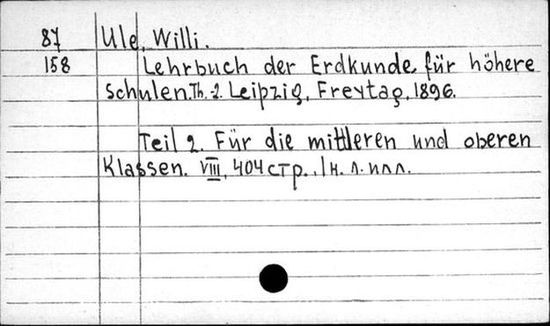 87 Ule, Willi.
158 Lehrbuch der Erdkunde für höhere
Schulen. Th. 2. Leipzig, Freytag, 1896.
Teil 2. Für die mittleren und oberen
Klassen. VIII, 404 стр., 1 н. л. илл.